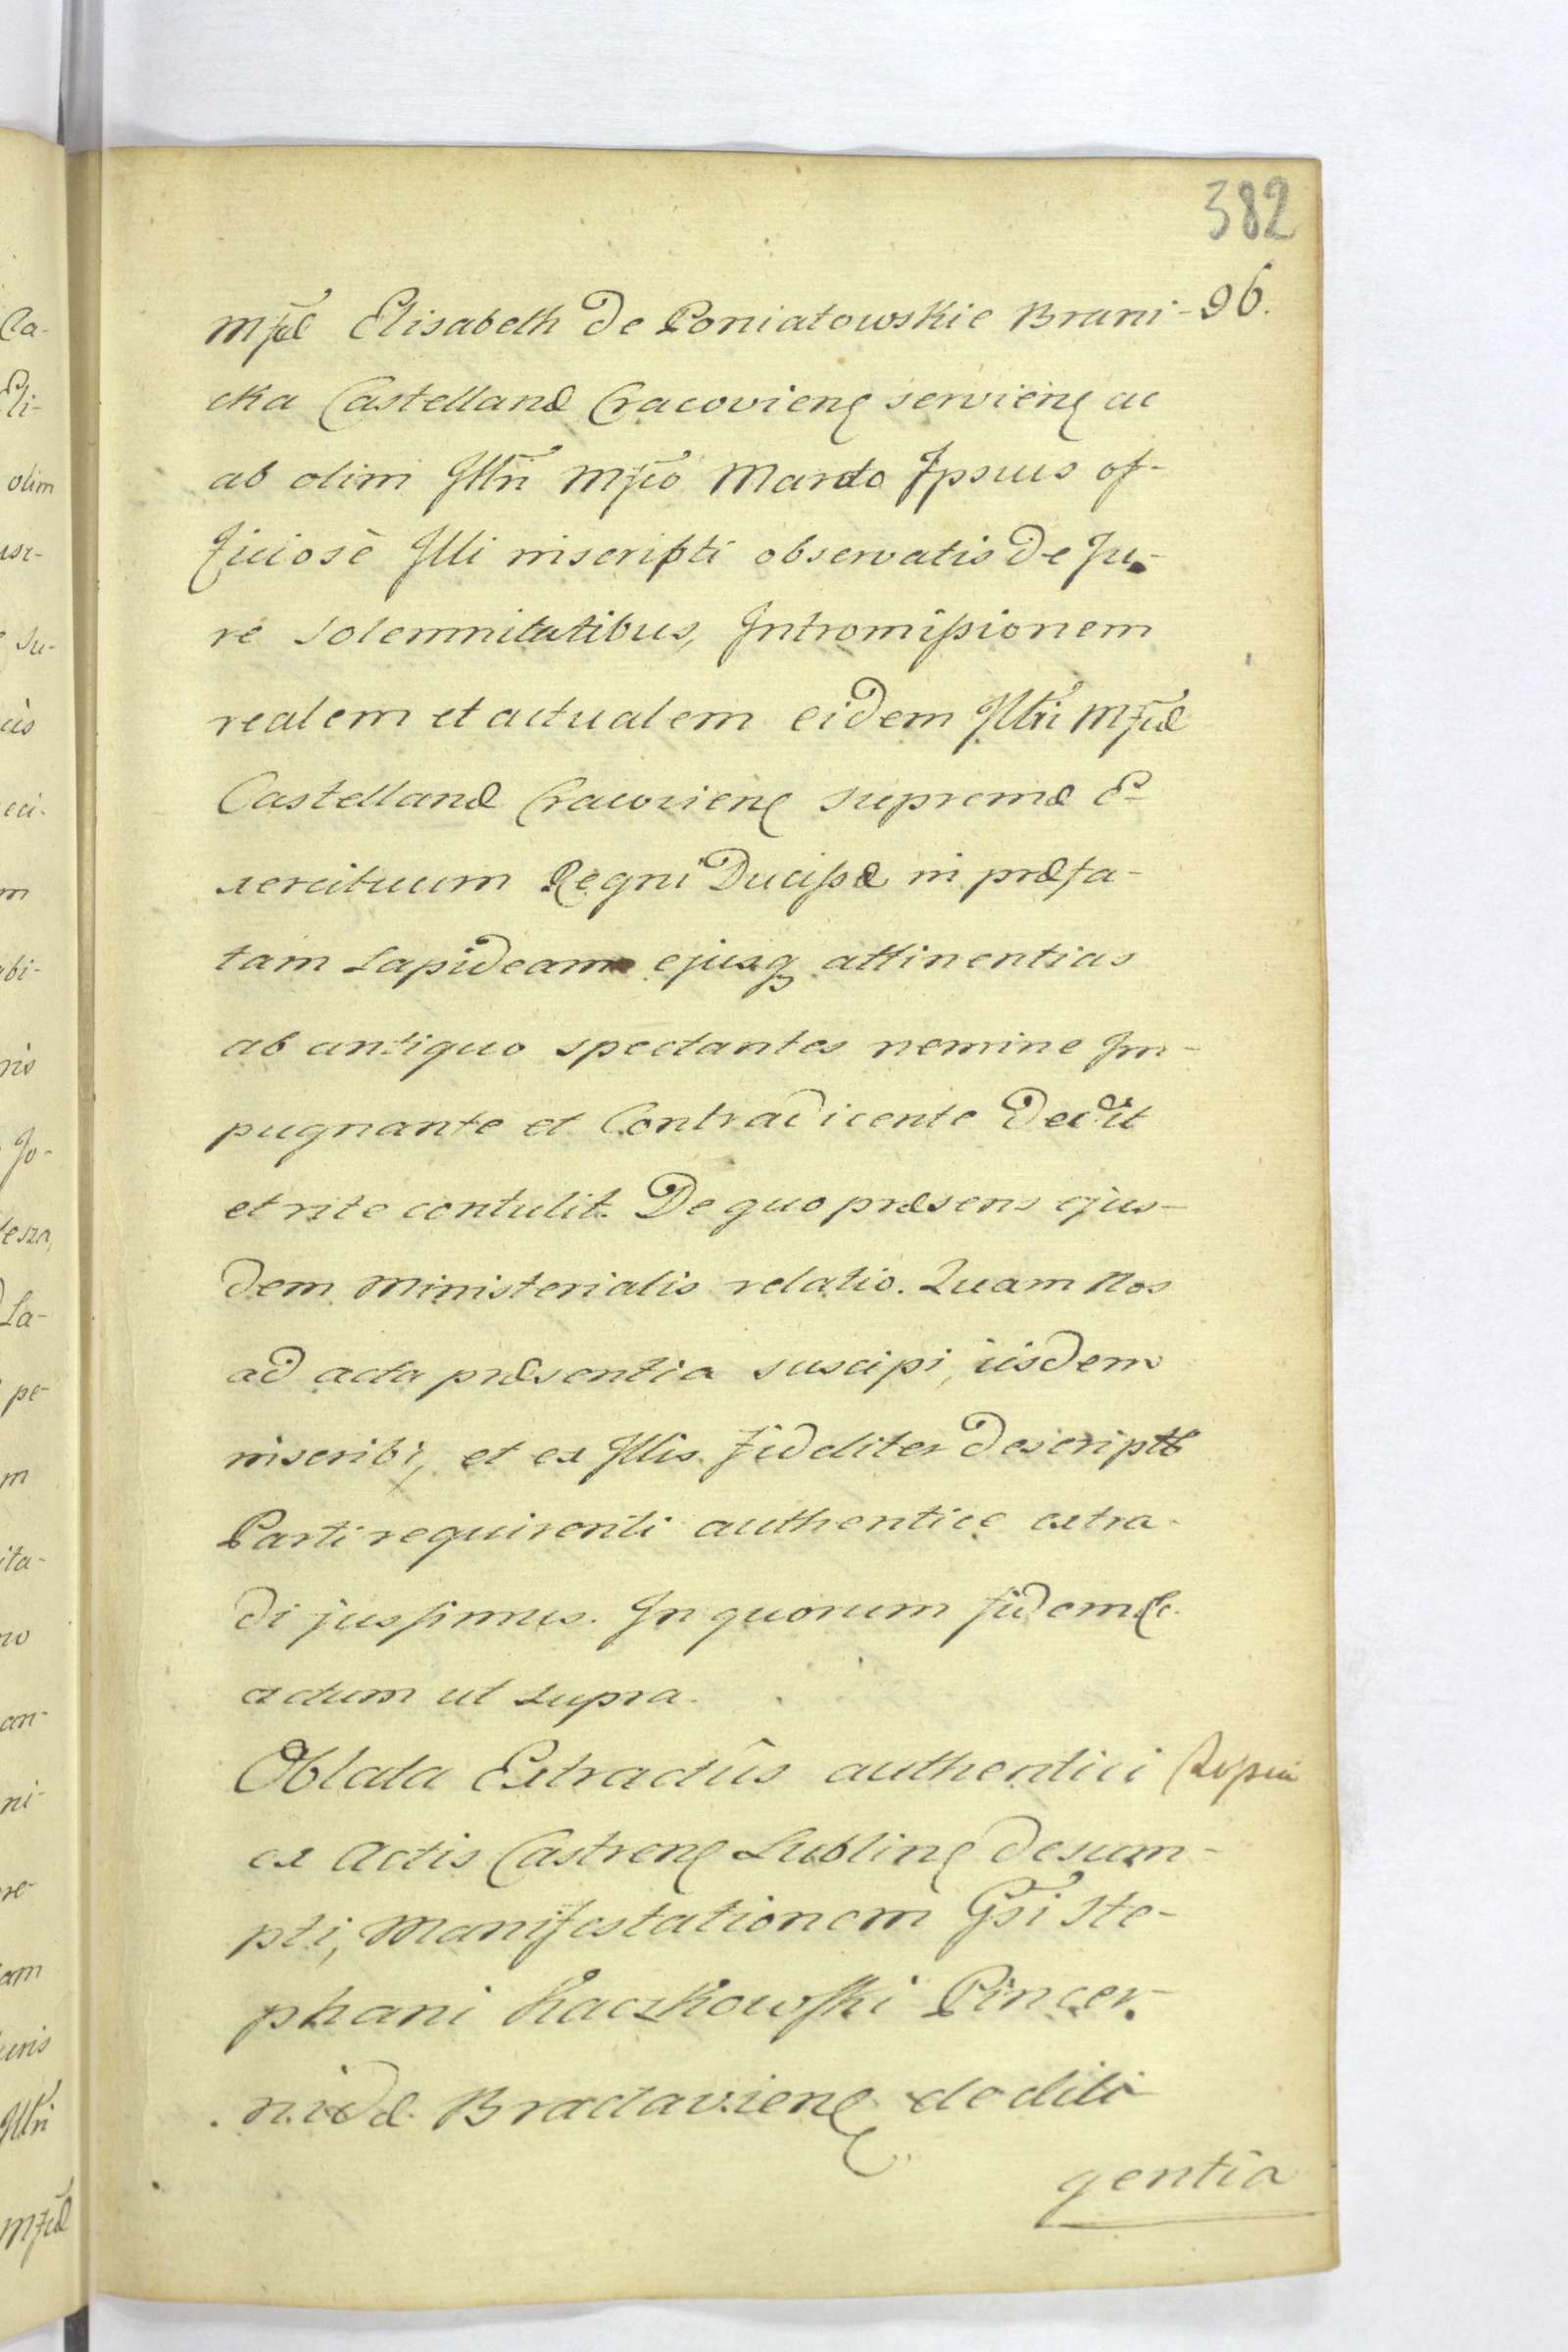 382
96.
Mfcæ Elisabeth De Poniatowskie Brani-
cka Castellanæ Cracovienſ servienſ ac
ab olim Jllri Mfico Marito Jpsius of-
ficiosè Jlli inscripti observatis De Ju-
re Solemnitatibus, Jntromissionem
realem et actualem eidem Jllri Mficæ
Castellanæ Cracovienſ Supremæ E-
xercituum Regni Ducissæ in præfa-
tam Lapideam ejusq attinentias
ab antiquo spectantes nemine Jm-
pugnante et Contradicente Dedit
et rite contulit. De quo præsens ejus-
dem Ministerialis relatio. Quam Nos
ad acta præsentia suscipi, iisdem
inscribi, et ex Jllis fideliter Descriptã
Parti requirenti authentice extra-
di jussimus. Jn quorum fidem &c.
actum ut supra.
Oblata Extractûs authentici
ex Actis Castrenſ Lublinſ Desum-
pti, Manifestationem Gsi Ste-
phani Kaczkowski Pincer-
nidæ Braclavienſ de dili
gentia
Ca-
Pli-
olim
usr-
Su-
cis
eci-
m
abi-
nis
Jo-
La-
pe-
m
ita-
no
an-
ni-
re-
am
uris
Jllri
Mficæ